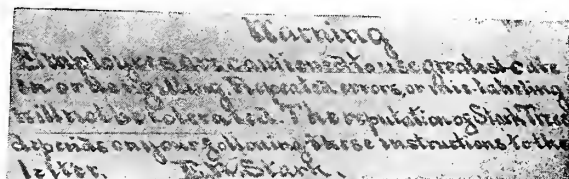 Warning
Employees are cautioned to use greatest care
in order filling. Repeated errors or mis-labeling
will not be tolerated. The reputation of Stark Trees
depends on your following these instructions to the
letter. Stark.